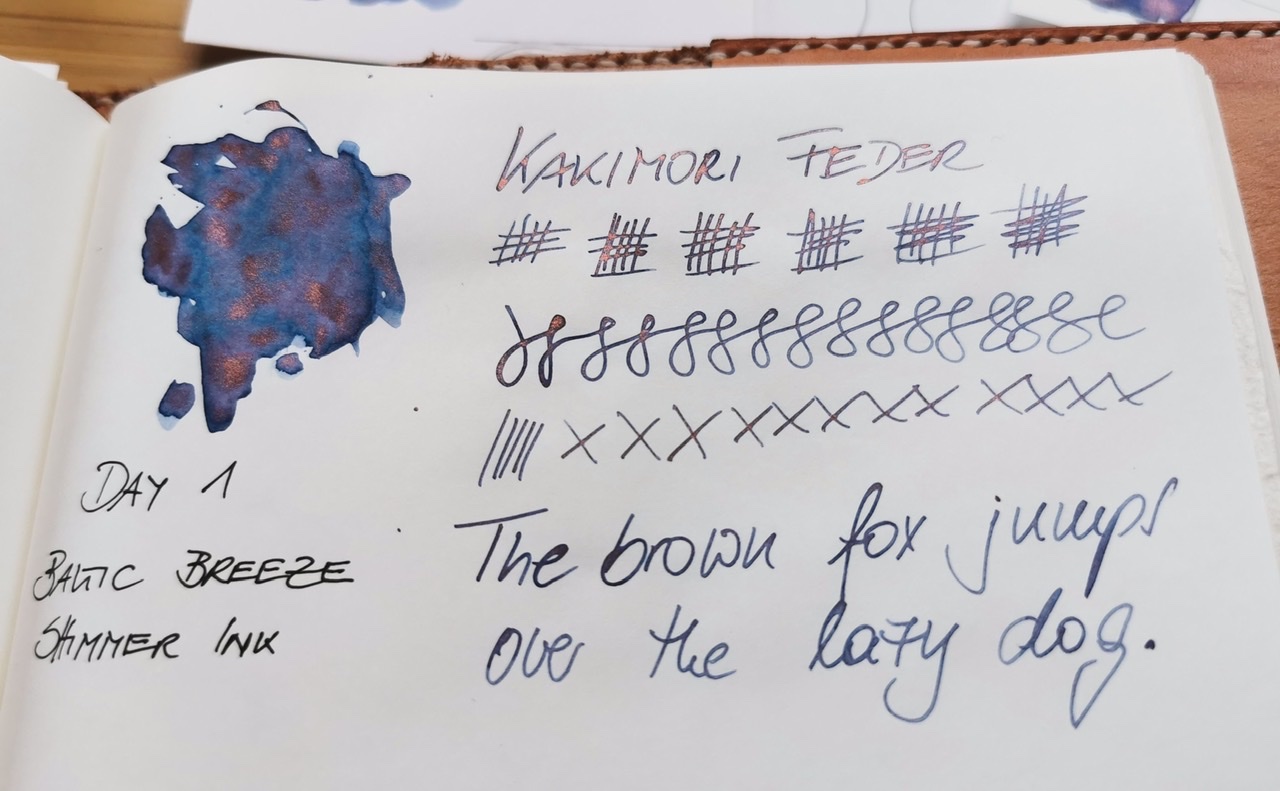 KAKIMORI FEDER
The brown fox jumps
over the lazy dog.
DAY 1
BALTIC BREEZE
SHIMMER INK